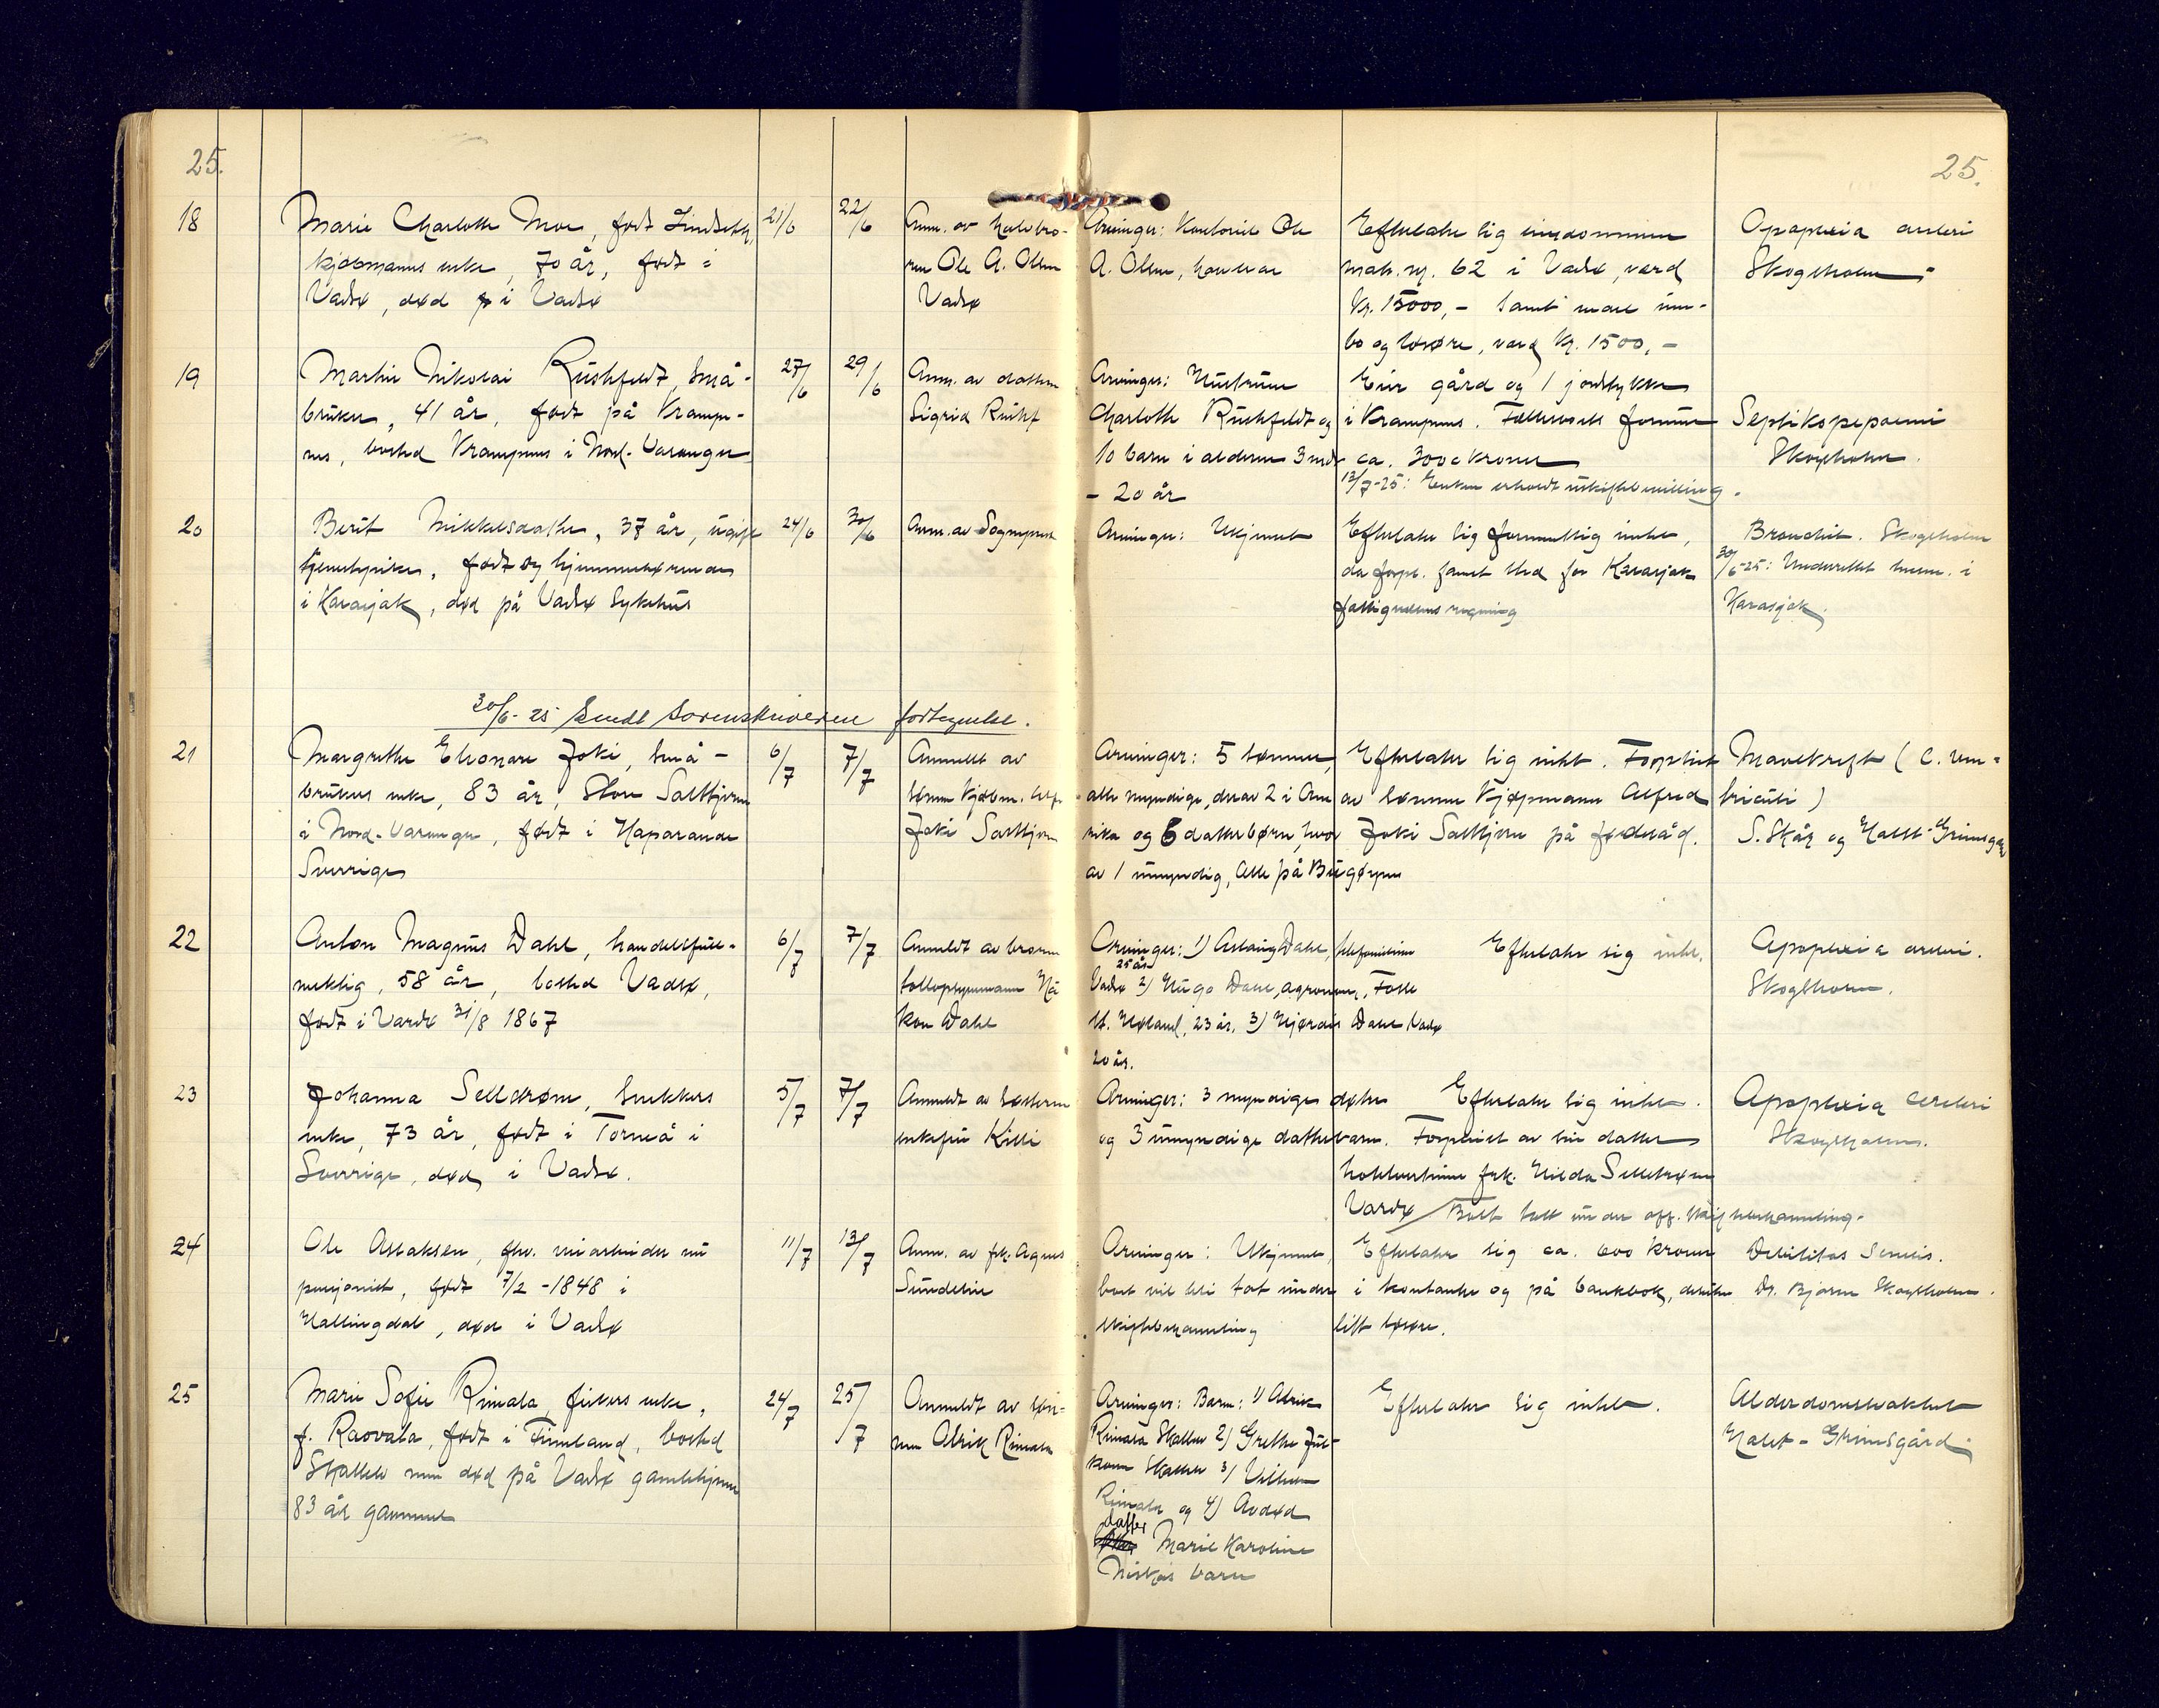 25.
25.
18
Marie Charlotte Moe, født Lindseth,
kjøbmanns enke, 70 år, født i
Vadsø, død i Vadsø
21/6
22/6
Anm. av halvbro-
ren Ole A. Olsen
Vadsø
Arvinger: Ole
A. Olsen,
Efterlater sig eiendommen
matr. nr. 62 i Vadsø, verd
Kr. 15000,- samt inn-
bo og løsøre, verd Kr. 1500,-
Apoplexia cerebri
Skogsholm
19
Martin Nikolai Rushfeldt, små-
bruker, 41 år, født på Krampe-
nes, bosted Krampenes i Nord-Varanger
27/6
29/6
Anm. av datteren
Sigrid Rushf
Arvinger: Hustruen
Charlotte Rushfeldt og
10 barn i alderen 3 mdr
- 20 år
Eier gård og 1 jordstykke
i Krampenes. Fellesboets formue
ca. 3000 kroner
13/7-25: Enken erholdt uskiftebevilling.
Skogsholm.
20
Berit Mikkelsdatter, 37 år, ugift
tjenestepike, født og hjemmehørende
i Karasjok, død på Vadsø Sykehus
24/6
30/6
Anm. av Sogneprest
Arvinger: Ukjent
Efterlater sig formentlig intet,
da forpl. fant sted for Karasjok
fattigvesens regning
Bronchit. Skogsholm
30/6-25: Underrettet lensm. i
Karasjok.
30/6-25 Sendt Sorenskriveren fortegnelse.
21
Margrethe Eleonore Joki, små-
brukers enke, 83 år, Store Saltkjern
i Nord-Varanger, født i Haparanda
Sverige
6/7
7/7
Anmeldt av
sønnen kjøbm. Alfr.
Joki Saltkjern
Arvinger: 5 sønner,
alle myndige, derav 2 i Ame
rika og 6 datterbørn, hvor
av 1 umyndig, alle på Bugøynes
Efterlater sig intet. Forpleiet
av sønnen kjøpmann Alfred
Joki Saltkjern på føderåd.
Mavekreft (C. ven-
triculi)
S. Skår og Halst-Grimsgår
22
Anton Magnus Dahl, handelsfull-
mektig, 58 år, bosted Vadsø,
født i Vardø 31/8 1867
6/7
7/7
Anmeldt av broren
tolloppsynsmann Hå
kon Dahl
Arvinger: 1) Aslaug Dahl, telefonistinne
25 år
Vadsø 2) Hugo Dahl, agronom,
23 år. 3) Hjørdis Dahl Vadsø
20 år.
Efterlater sig intet.
Apoplexia cerebri.
Skogsholm.
23
Johanna Sellstrøm, snekkers
enke, 73 år, født i Torneå i
Sverrige, død i Vadsø.
5/7
7/7
Anmeldt av søsteren
enkefru Killi
Arvinger: 3 myndige døtre
og 3 umyndige datterbarn.
Efterlater sig intet.
Forpleiet av sin datter
hotelvertinne frk. Hilda Sellstrøm
Vardø Boet tatt under off. skiftebehandling.
Apoplexia cerebri
Skogsholm.
24
Ole Aslaksen, fhv. veiarbeider nu
pensjonist, født 7/2-1848 i
Hallingdal, død i Vadsø
11/7
13/7
Anm. av frk. Agnes
Sundelin
Arvinger: Ukjent,
boet vil bli tat under
skiftebehandling
Efterlater sig ca. 600 kroner
i kontanter og på bankbok, desuten
litt løsøre.
Debilitas Senilis.
Dr. Bjarne Skogsholm.
25
Marie Sofie Rimala, fiskers enke,
f. Raovala, født i Finnland, bosted
Skallelv men død på Vadsø gamlehjem
83 år gammel
24/7
25/7
Anmeldt av søn-
nen Alrik Rimala
Arvinger: Barn: 1) Alrik
Rimala Skallelv 2) Grethe
Skallelv 3) Vilhelm
Rimala og 4) Avdød
datter
Marie Karoline
barn
Efterlater sig intet.
Alderdomssvakhet
Halst-Grimsgård